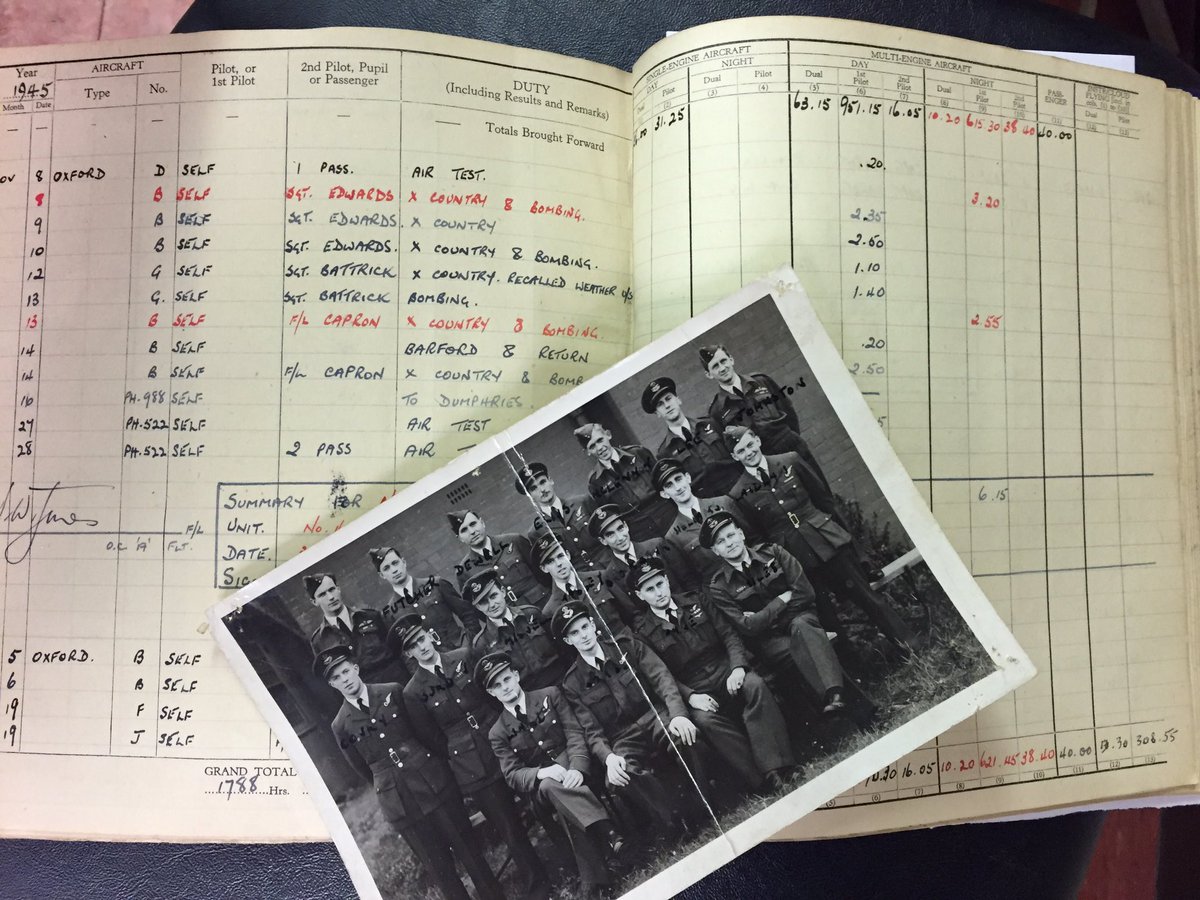 Year AIRCRAFT Pilot, or 2nd Pilot, Pupil DUTY
1945 Type No. 1st Pilot or Passenger (Including Results and Remarks)
Month Date
— — — — Totals Brought Forward
8 OXFORD D SELF 1 PASS. AIR TEST.
8 B SELF SGT. EDWARDS X COUNTRY & BOMBING.
9 B SELF SGT. EDWARDS. X COUNTRY
10 B SELF SGT. EDWARDS. X COUNTRY & BOMBING.
12 G SELF SGT. BATTRICK X COUNTRY. RECALLED WEATHER U/S
13 G. SELF SGT. BATTRICK BOMBING.
13 B SELF F/L CAPRON X COUNTRY & BOMBING.
14 B SELF BARFORD & RETURN
14 B SELF F/L CAPRON X COUNTRY & BOMB
16 PH.988 SELF TO DUMPHRIES.
27 PH.522 SELF AIR TEST
28 PH.522 SELF 2 PASS AIR
SUMMARY FOR
UNIT. No.
DATE.
F/L
O.C 'A' FLT.
5 OXFORD. B SELF
6 B SELF
19 F SELF
19 J SELF
GRAND TOTAL
1788 Hrs.
SINGLE-ENGINE AIRCRAFT MULTI-ENGINE AIRCRAFT
DAY NIGHT DAY NIGHT PASS-ENGER INSTR/CLOUD FLYING
Pilot Dual Pilot Dual 1st Pilot 2nd Pilot Dual 1st Pilot 2nd Pilot Dual Pilot
(2) (3) (4) (5) (6) (7) (8) (9) (10) (11) (12) (13)
31.25 63.15 951.15 16.05 10.20 615.30 38.40 40.00
.20.
3.20
2.35
2.50
1.10
1.40
2.55
.20
2.50
6.15
16.05 10.20 621.45 38.40 40.00 308.55
(6) (7) (8) (9) (10) (11) (12) (13)
JOHNSTON
DEWELL
FUTCHER
MILNE